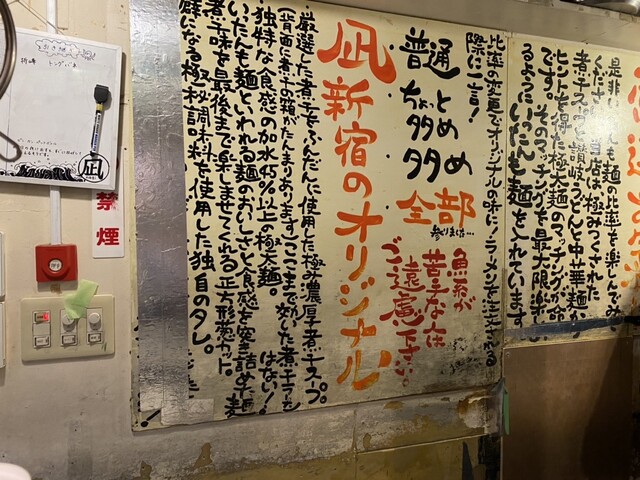 是非いったんも麺の比率を楽しんでみて
ください。当店は極みつくされた
煮干スープと讃岐うどんと中華麺から
ヒントを得た極太麺のマッチングが命
です。そのマッチングを最大限楽しめ
るようにいったんも麺を入れています
比率の変更でオリジナルの味に!ラーメンを注文する
際に一言!
普通
ちょっと
多め
多め
全部
参りました…
魚系が
苦手な方
ご遠慮下さい。
凪新宿のオリジナル
厳選した煮干をふんだんに使用した極み濃厚煮干スープ。
(背面に煮干の箱がたんまりあります)ここまで効いた煮干ラーメンはない!
独特な食感の加水45%以上の極太麺。
いったんも麺といわれる麺のおいしさと食感を楽しむ
煮干味を最後まで楽しませてくれる正方形葱カット。
癖になる極秘調味料を使用した独自のタレ。
凪
禁煙